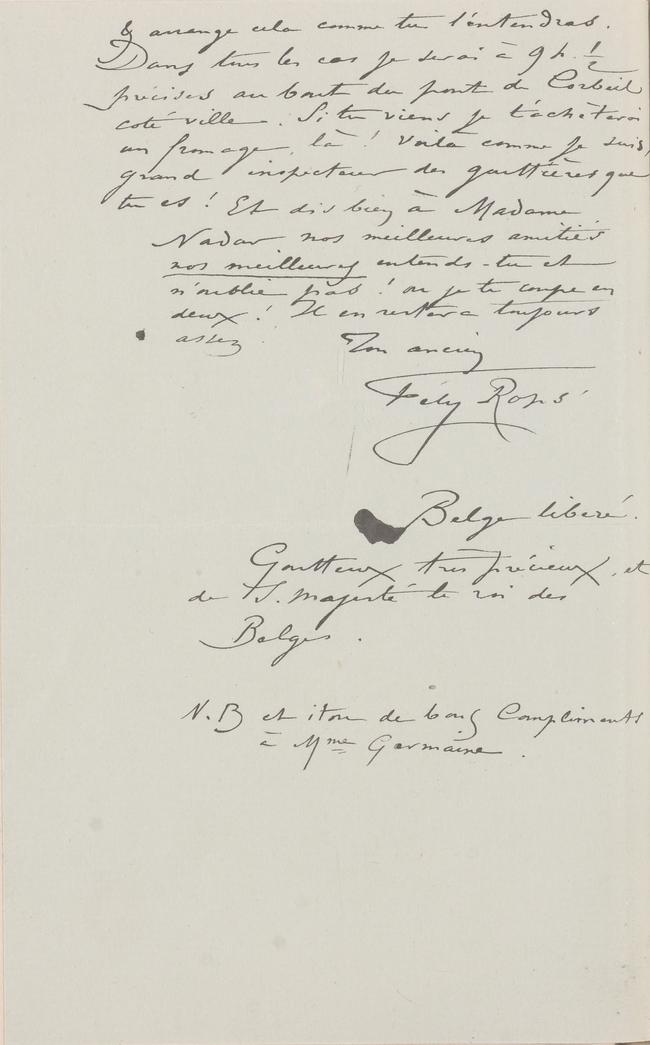 & arrange cela comme tu l'entendras.
Dans tous les cas je serai à 9 h. ½
précises au bout du pont de Corbeil
coté ville. Si tu viens je t'achèterai
un fromage, là! Voilà comme je suis,
grand inspecteur des gouttières que
tu es! Et dis bien à Madame
Nadar nos meilleures amitiés
nos meilleures entends-tu et
n'oublie pas! ou je te coupe en
deux! Il en restera toujours
assez
Ton ancien
Fély Rops
Belge libéré.
Goutteux très précieux, et
de S. Majesté le roi des
Belges.
N.B et itou de bons Compliments
à Mme Germaine.